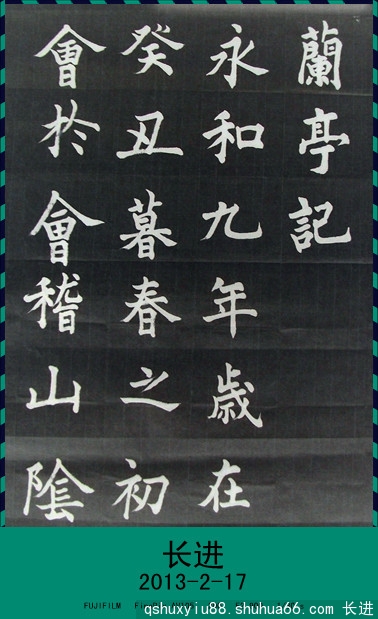 蘭亭記
永和九年歲在
癸丑暮春之初
會於會稽山陰
长进
2013-2-17
FUJIFILM
qshuxyiu88.shuhua66.com 长进